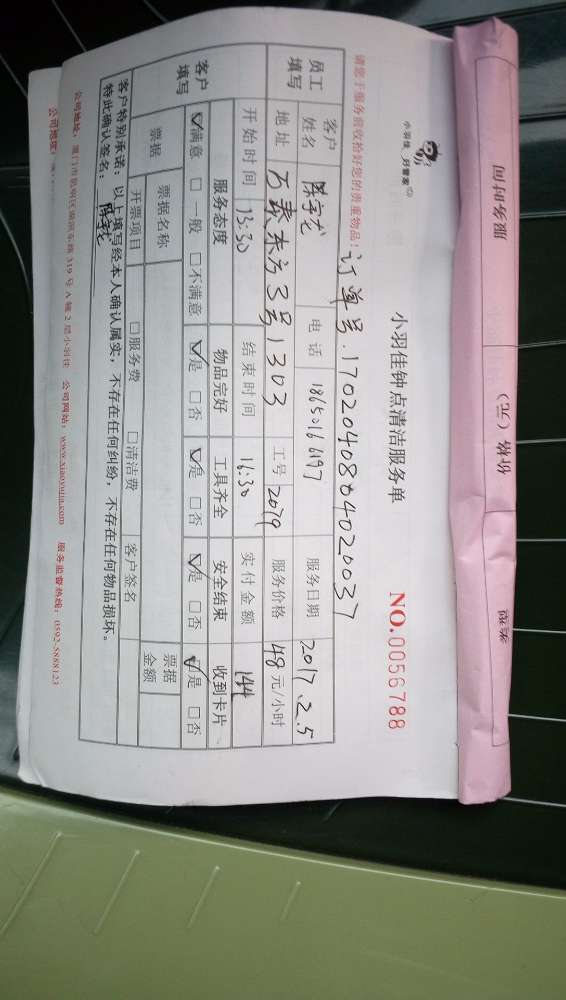 服务时间 价格（元） 签字
小羽佳 好管家
小羽佳钟点清洁服务单
NO.0056788
请您于服务前收拾好您的贵重物品！
订单号.1702040804020037
员工填写 客户姓名 陈宇龙 电话 18650166197 服务日期 2017.2.5
地址 万寿东方3号1303 工号 2079 服务价格 48元/小时
开始时间 13:30 结束时间 16:30 实付金额 144
客户填写 服务态度 物品完好 工具齐全 安全结束 收到卡片
☑满意 □一般 □不满意 ☑是 □否 ☑是 □否 ☑是 □否 ☑是 □否
票据 票据名称 票据金额
开票项目 □服务费 □清洁费 客户签名
客户特别承诺：以上填写经本人确认属实，不存在任何纠纷，不存在任何物品损坏。
特此确认签名：陈宇龙
319号A幢2层小羽佳 公司网站：www.xiaoyujia.com 服务监督热线：0592-5888123
公司地址：